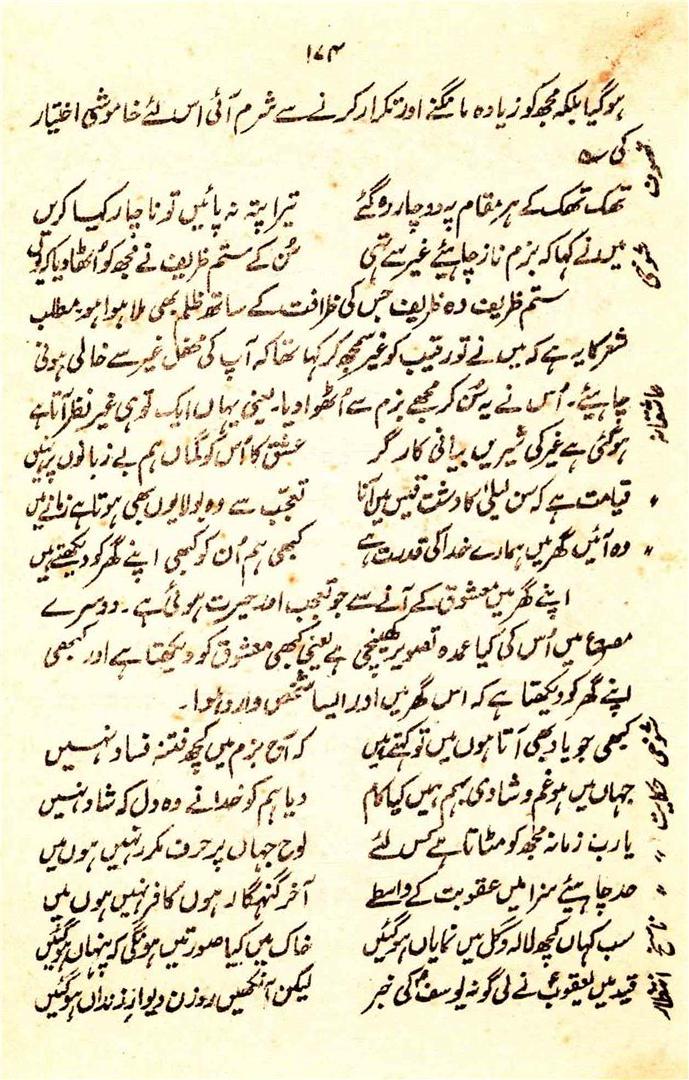 ۱۷۴
ہوگیا بلکہ مجھ کو زیادہ مانگنے اور تکرار کرنے سے شرم آئی اس لئے خاموشی اختیار
کی ؎
تصوف تھک تھک کے ہر مقام پہ دو چار رہ گئے تیرا پتہ نہ پائیں تو ناچار کیا کریں
شوخی میں نے کہا کہ بزم ناز چاہیئے غیر سے تہی سُن کے ستم ظریف نے مجھ کو اُٹھا دیا کہ یوں
ستم ظریف وہ ظریف جس کی ظرافت کے ساتھ ظلم بھی ملا ہوا ہو۔ مطلب
شعر کا یہ ہے کہ میں نے تو رقیب کو غیر سمجھ کر کہا تھا کہ آپ کی محفل غیر سے خالی ہونی
چاہیئے۔ اُس نے یہ سُن کر مجھے بزم سے اُٹھوا دیا۔ یعنی یہاں ایک تو ہی غیر نظر آتا ہے
عاشقانہ ہوگئی ہے غیر کی شیریں بیانی کارگر عشق کا اُس کو گماں ہم بے زبانوں پر نہیں
〃 قیامت ہے کہ سن لیلیٰ کا دشت قیس میں آنا تعجّب سے وہ بولا یوں بھی ہوتا ہے زمانے میں
〃 وہ آئیں گھر میں ہمارے خدا کی قدرت ہے کبھی ہم اُن کو کبھی اپنے گھر کو دیکھتے ہیں
اپنے گھر میں معشوق کے آنے سے جو تعجب اور حیرت ہوئی ہے۔ دوسرے
مصرع میں اُس کی کیا عمدہ تصویر کھینچی ہے یعنی کبھی معشوق کو دیکھتا ہے اور کبھی
اپنے گھر کو دیکھتا ہے کہ اس گھر میں اور ایسا شخص وارد ہوا۔
شوخی کبھی جو یاد بھی آتا ہوں میں تو کہتے ہیں کہ آج بزم میں کچھ فتنہ فساد نہیں
شکایت جہاں میں ہو غم و شادی بہم ہمیں کیا کام دیا ہم کو خدا نے وہ دل کہ شاد نہیں
〃 یارب زمانہ مجھ کو مٹاتا ہے کس لئے لوح جہاں پر حرف مکرر نہیں ہوں میں
〃 حد چاہیئے سزا میں عقوبت کے واسطے آخر گنہگار ہوں کافر نہیں ہوں میں
سب کہاں کچھ لالہ و گل میں نمایاں ہوگئیں خاک میں کیا صورتیں ہونگی کہ پنہاں ہوگئیں
انتظار قید میں یعقوبؑ نے لی گو نہ یوسفؑ کی خبر لیکن آنکھیں روزن دیوار زنداں ہوگئیں